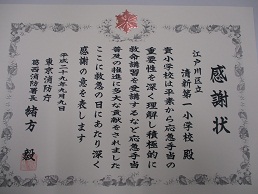 感謝状
江戸川区立
清新第一小学校 殿
貴小学校は平素から応急手当の
重要性を深く理解し積極的に
救命講習を受講するなど応急手当
普及の推進に多大な貢献をされました
ここに救急の日にあたり深く
感謝の意を表します
平成二十九年九月九日
東京消防庁
葛西消防署長 緒方 毅